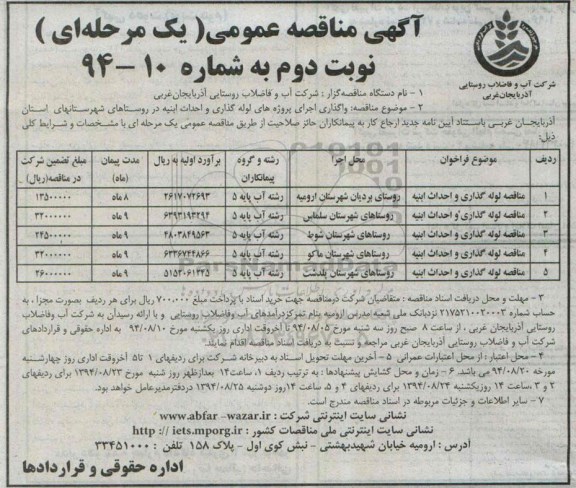 آگهی مناقصه عمومی( یک مرحله‌ای )
نوبت دوم به شماره ۱۰ – ۹۴
شرکت آب و فاضلاب روستایی
آذربایجان‌غربی
۱ - نام دستگاه مناقصه‌گزار : شرکت آب و فاضلاب روستایی آذربایجان‌غربی
۲ - موضوع مناقصه: واگذاری اجرای پروژه های لوله گذاری و احداث ابنیه در روستاهای شهرستانهای استان
آذربایجان غربی باستناد آیین نامه جدید ارجاع کار به پیمانکاران حائز صلاحیت از طریق مناقصه عمومی یک مرحله ای با مشخصات و شرایط کلی
ذیل:
ردیف موضوع فراخوان محل اجرا رشته و گروه پیمانکاران برآورد اولیه به ریال مدت پیمان (ماه) مبلغ تضمین شرکت در مناقصه(ریال)
۱ مناقصه لوله گذاری و احداث ابنیه روستای بردیان شهرستان ارومیه رشته آب پایه ۵ ۲۶۱۷۰۷۲۶۹۳ ۸ ماه ۱۳۵۰۰۰۰۰۰
۲ مناقصه لوله گذاری و احداث ابنیه روستاهای شهرستان سلماس رشته آب پایه ۵ ۶۳۹۳۱۹۳۲۹۴ ۹ ماه ۳۲۰۰۰۰۰۰۰
۳ مناقصه لوله گذاری و احداث ابنیه روستاهای شهرستان شوط رشته آب پایه ۵ ۴۸۰۳۸۴۹۵۶۳ ۹ ماه ۲۴۵۰۰۰۰۰۰
۴ مناقصه لوله گذاری و احداث ابنیه روستاهای شهرستان ماکو رشته آب پایه ۵ ۶۳۳۶۷۴۴۸۶۶ ۹ ماه ۳۲۰۰۰۰۰۰۰
۵ مناقصه لوله گذاری و احداث ابنیه روستاهای شهرستان پلدشت رشته آب پایه ۵ ۵۱۵۲۰۶۱۳۳۵ ۹ ماه ۲۶۰۰۰۰۰۰۰
۳ - مهلت و محل دریافت اسناد مناقصه : متقاضیان شرکت درمناقصه جهت خرید اسناد با پرداخت مبلغ ۷۰۰.۰۰۰ ریال برای هر ردیف بصورت مجزا ، به
حساب شماره ۲۱۷۵۲۱۰۰۲۰۰۰۳ نزدبانک ملی شعبه مدرس ارومیه بنام تمرکزدرآمدهای آب وفاضلاب روستایی و با ارائه رسیدآن به شرکت آب وفاضلاب
روستایی آذربایجان غربی ، از ساعت ۸ صبح روز سه شنبه مورخ ۹۴/۰۸/۰۵ تا آخروقت اداری روز یکشنبه مورخ ۹۴/۰۸/۱۰ به اداره حقوقی و قراردادهای
شرکت آب و فاضلاب روستایی آذربایجان غربی مراجعه و نسبت به دریافت اسناد مناقصه اقدام نمایند.
۴ - محل اعتبار : از محل اعتبارات عمرانی ۵ - آخرین مهلت تحویل اسناد به دبیرخانه شرکت برای ردیفهای ۱ تا۵ آخروقت اداری روز چهارشنبه
مورخه ۹۴/۰۸/۲۰ می باشد. ۶ - زمان و محل گشایش پیشنهادها : به ترتیب ردیف ۱، ساعت۱۴ بعدازظهر روز شنبه مورخ ۱۳۹۴/۰۸/۲۳ برای ردیفهای
۲ و ۳ ،ساعت ۱۴ روزیکشنبه ۱۳۹۴/۰۸/۲۴ برای ردیفهای ۴ و ۵، ساعت ۱۴روز دوشنبه ۱۳۹۴/۰۸/۲۵ دردفترمدیرعامل خواهد بود.
۷ - سایر اطلاعات و جزئیات مربوطه در اسناد مناقصه مندرج است.
نشانی سایت اینترنتی شرکت : www.abfar -wazar.ir
نشانی سایت اینترنتی ملی مناقصات کشور : http :// iets.mporg.ir
آدرس : ارومیه خیابان شهیدبهشتی - نبش کوی اول - پلاک ۱۵۸ تلفن : ۳۳۴۵۱۰۰۰
اداره حقوقی و قراردادها